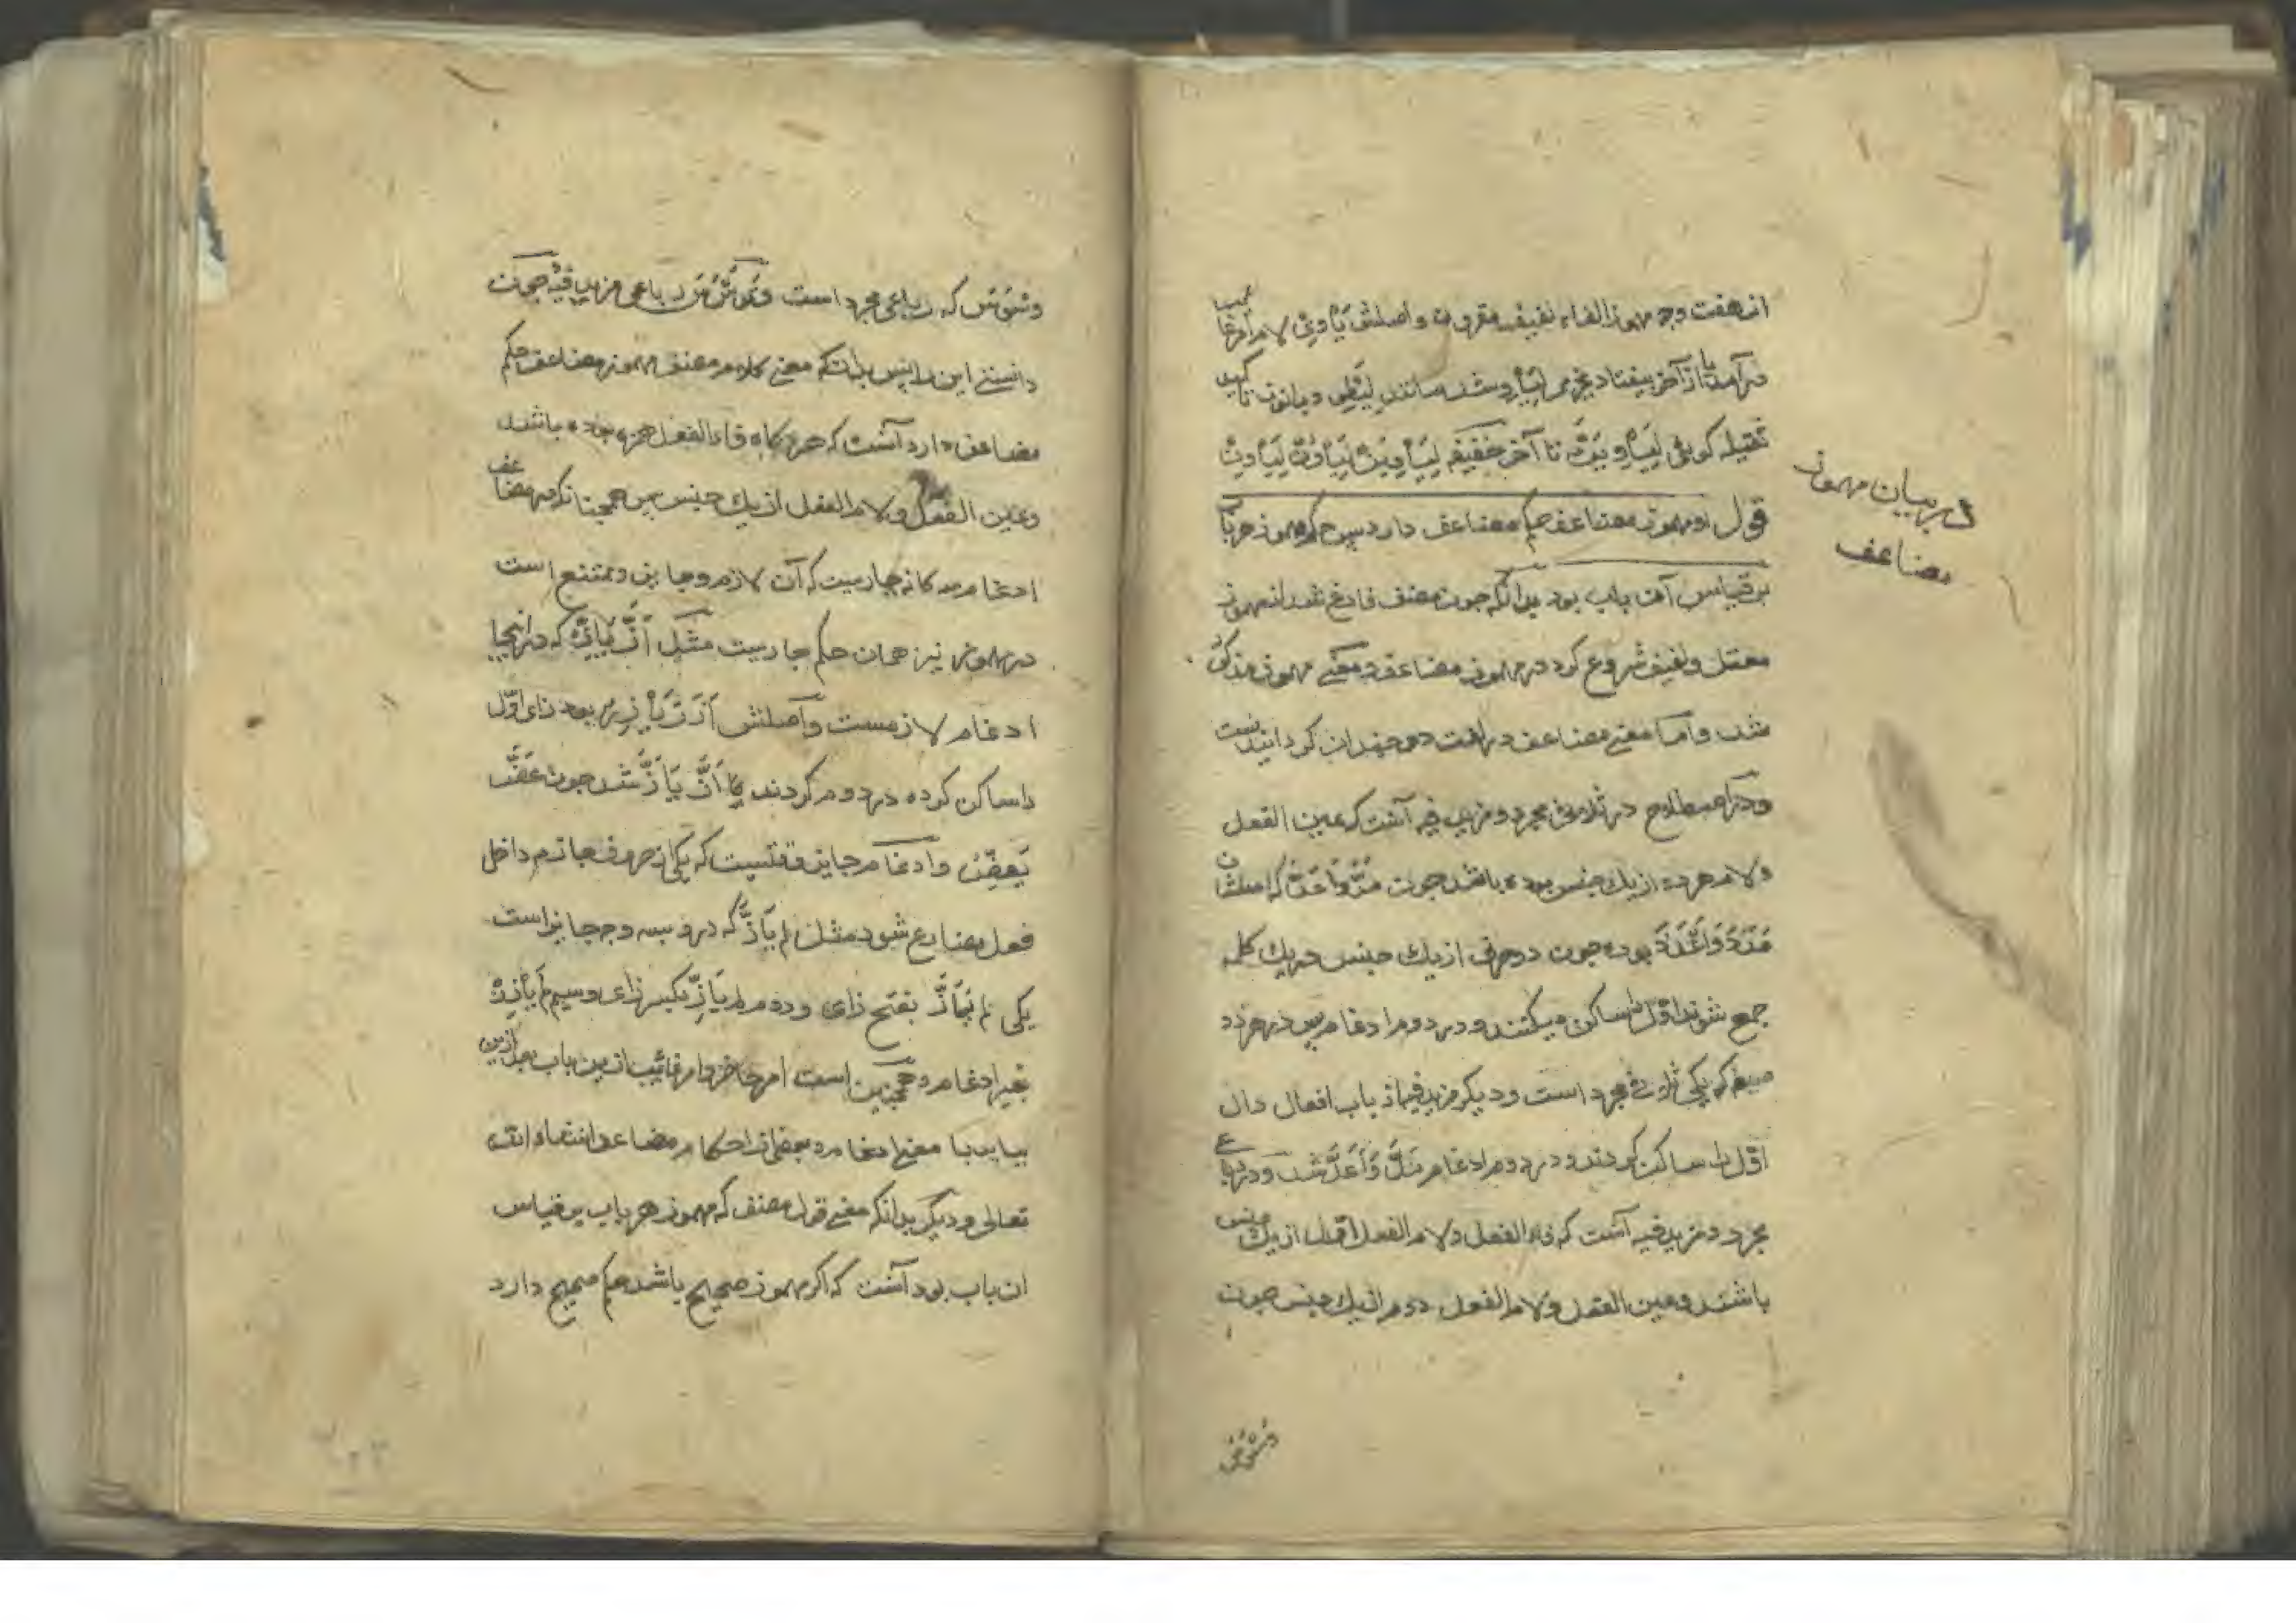 از هفت وجه مهموز الفاء لفیف مقرون واصلش یَأْوِیُ لام امر غایب
درآمد یا از آخر بیفتاد بجزم لِیَأْوِ شد مانند لِیَطْوِ و بانون تاکید
ثقیله کوئی لِیَأْوِیَنَّ تا آخر خفیفه لِیَأْوِیَنْ لِیَأْوُنْ لِتَأْوِیَنْ
قوله ومهموز مضاعف حکم مضاعف دارد پس حکم مهموز هر باب
بر قیاس آن باب بود بدانکه چون مصنف فارغ شد از مهموز
معتل ولفیف شروع کرد در مهموز مضاعف و معنی مهموز مذکور
شد واما معنی مضاعف در لغت دو چندان کردانیدنست
ودر اصطلاح در ثلاثی مجرد ومزید فیه آنست که عین الفعل
ولام هر دو از یک جنس بوده باشد چون مَدَّ وَاَعَدَّ که اصلشان
مَدَدَ وَاَعْدَدَ بوده چون دو حرف از یک جنس در یک کلمه
جمع شوند اول را ساکن میکنند ودر دوم ادغام پس در هر دو
صیغه که یکی ثلاثی مجرد است ودیکر مزید فیه از باب افعال دال
اوّل را ساکن کردند ودر دوم ادغام مَدَّ وَاَعَدَّ شد ودر رباعی
مجرد ومزید فیه آنست که فاء الفعل ولام الفعل اول از یک جنس
باشند وعین الفعل ولام الفعل دوم از یک جنس چون
وَسْوَسَ
در بیان مهموز
مضاعف
وسوس که رباعی مجرد است وتَوَسْوَسَ رباعی مزید فیه چون
دانستی این را پس بدانکه معنی کلام مصنف مهموز مضاعف حکم
مضاعف دارد آنست که هرکاه فاء الفعل همزه بوده باشد
وعین الفعل ولام الفعل از یک جنس پس همچنانکه در مضاعف
ادغام سه کانه جاریست که آن لازم وجایز وممتنع است
در مهموز نیز همان حکم جاریست مثل اَزَّ یَأُزُّ که در اینجا
ادغام لازمست واصلش اَزَزَ یَأْزِزُ بود زای اوّل
را ساکن کرده در دوم کردند اَزَّ یَأَزُّ شد چون عَضَّ
یَعَضُّ وادغام جایز وقتیست که یکی از حروف جازم داخل
فعل مضارع شود مثل لم یَأَزَّ که درو سه وجه جایز است
یکی لم یَأَزَّ بفتح زای ودوم لم یَأَزِّ بکسر زای وسیم لم یَأْزِزْ
بغیر ادغام وهمچنین است امر حاضر وامر غایب ازین باب بعد ازین
بیاید با معنی ادغام وبعضی از احکام مضاعف انشاء الله
تعالی ودیکر بدانکه معنی قول مصنف که مهموز هر باب بر قیاس
ان باب بود آنست که اکر مهموز صحیح باشد حکم صحیح دارد